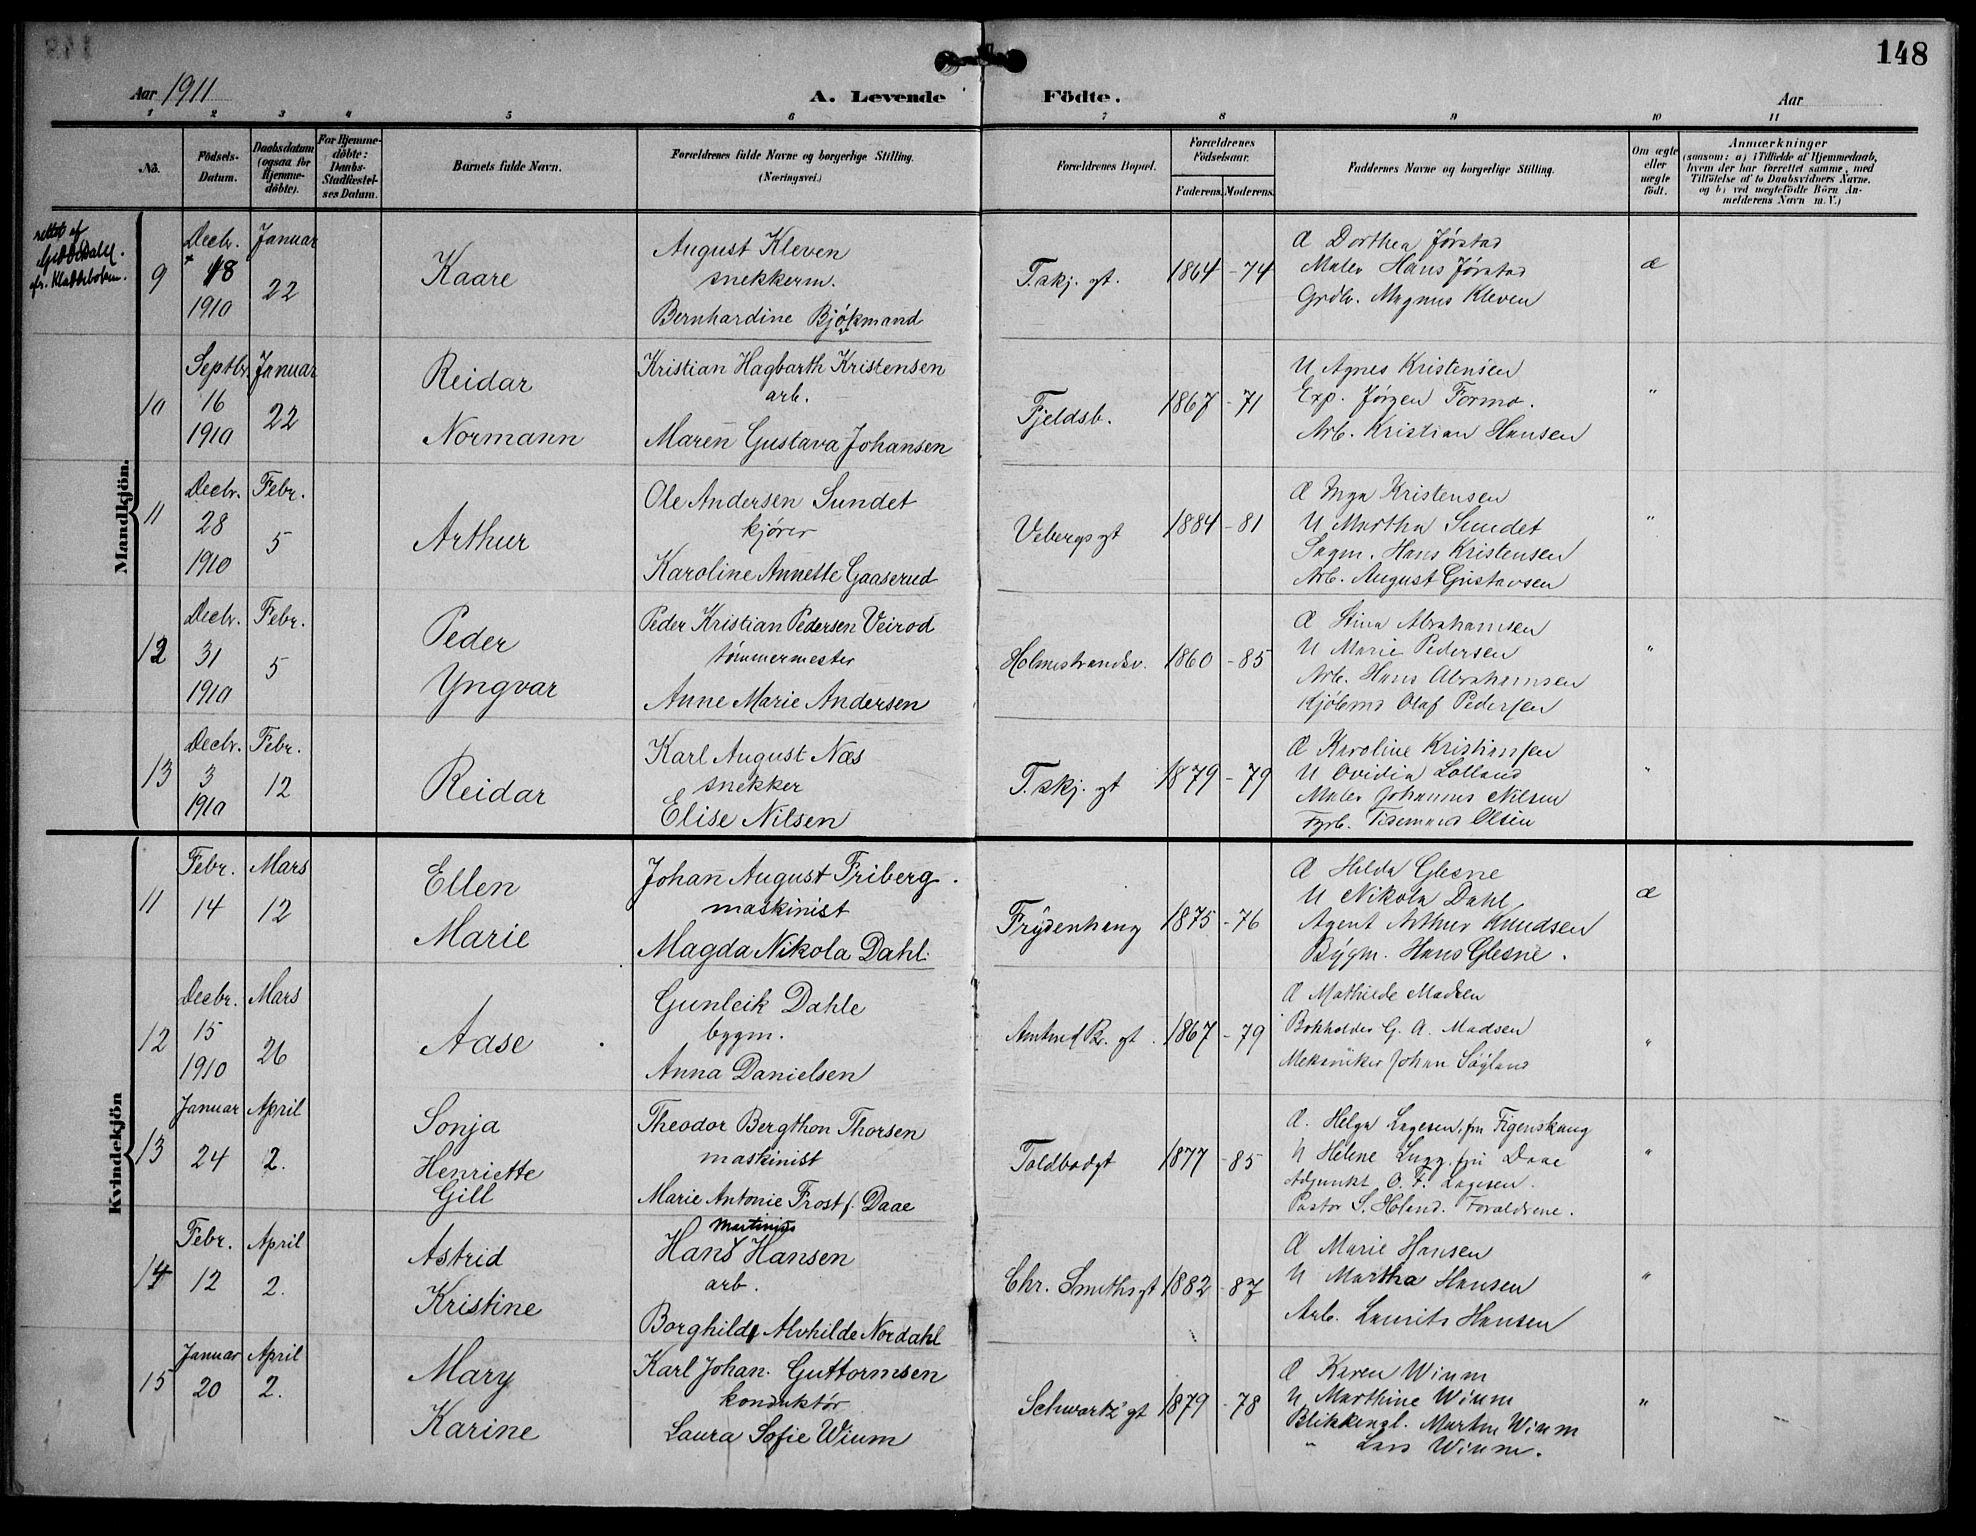 148
Aar 1911
A. Levende Födte.
Aar
1 2 3 4 5 6 7 8 9 10 11
No.
Födsels-Datum.
Daabsdatum (ogsaa for Hjemme-döbte).
For Hjemme-döbte: Daabs-Stadfæstel-ses Datum.
Barnets fulde Navn.
Forældrenes fulde Navne og borgerlige Stilling. (Næringsvei.)
Forældrenes Bopæl.
Forældrenes Födselsaar.
Faderens. Moderens.
Faddernes Navne og borgerlige Stilling.
Om ægte eller uægte födt.
Anmærkninger
(saasom: a) i Tilfælde af Hjemmedaab,
hvem der har forrettet samme, med
Tilföielse af to Daabsvidners Navne.
og b) ved uægtefödte Börn An-
melderens Navn m. V.)
Mandkjön.
rettet af
efr. Kladdeboken.
9
Decbr. 18 1910
Januar 22
Kaare
August Kleven
snekkerm.
Bernhardine Bjørkmand
T.skj. gt.
1864 - 74
Æ Dorthea Jørstad
Maler Hans Jørstad
Grdbr. Magnus Kleven
æ
10
Septbr. 16 1910
Januar 22
Reidar
Normann
Kristian Hagbarth Kristensen
arb.
Maren Gustava Johansen
Fjeldsb.
1867 - 71
U Agnes Kristensen
Exp. Jørgen Formo.
Arb. Kristian Hansen
"
11
Decbr. 28 1910
Febr. 5
Arthur
Ole Andersen Sundet
kjører
Karoline Annette Gaaserud
Vebergs gt
1884 - 81
Æ Inga Kristensen
U Martha Sundet
Sagm. Hans Kristensen
Arb. August Gustavsen
"
12
Decbr. 31 1910
Febr. 5
Peder
Yngvar
Peder Kristian Pedersen Veirod
tømmermester
Anne Marie Andersen
Holmestrandsv.
1860 - 85
Æ Stina Abrahamsen
U Marie Pedersen
Arb. Hans Abrahamsen
Kjøbmd Olaf Pedersen
"
13
Decbr. 3 1910
Febr. 12
Reidar
Karl August Næs
snekker
Elise Nilsen
T.skj. gt
1879 - 79
Æ Karoline Kristiansen
U Ovidia Lolland
Maler Johannes Nilsen
Fyrb. Olsen
"
Kvindekjön
11
Febr. 14
Mars 12
Ellen
Marie
Johan August Friberg.
maskinist
Magda Nikola Dahl.
Frydenhaug
1875 - 76
Æ Helda Glesne
U Nikola Dahl
Agent Arthur Knudsen
Bygm. Hans Glesne.
æ
12
Decbr. 15 1910
Mars 26
Aase
Gunleik Dahle
bygm.
Anna Danielsen
Amtmd Bl. gt.
1867 - 79
Æ Mathilde Madsen
Bokholder G. A. Madsen
Mekaniker Johan Søyland
"
13
Januar 24
April 2.
Sonja
Henriette
Gill
Theodor Bergthon Thorsen
maskinist
Marie Antonie Frost f. Daae
Toldbodgt
1877 - 85
Æ. Helga Lagesen, fru Figenskaug
U Helene Lugg. fru Daae
Adjunkt O. F. Lagesen.
Pastor S. Holand. Forældrene.
"
14
Febr. 12
April 2.
Astrid
Kristine
Martinus
Hans Hansen
arb.
Borghild Alvhilde Nordahl
Chr. Smiths gt
1882 - 87
Æ Marie Hansen
U Martha Hansen
Arb. Laurits Hansen
"
15
Januar 20
April 2.
Mary
Karine
Karl Johan Guttormsen
konduktør
Laura Sofie Wium
Schwartz gt
1879 - 78
Æ Karen Wium
U Marthine Wium
Blikkensl. Martin Wium
" Lars Wium.
"